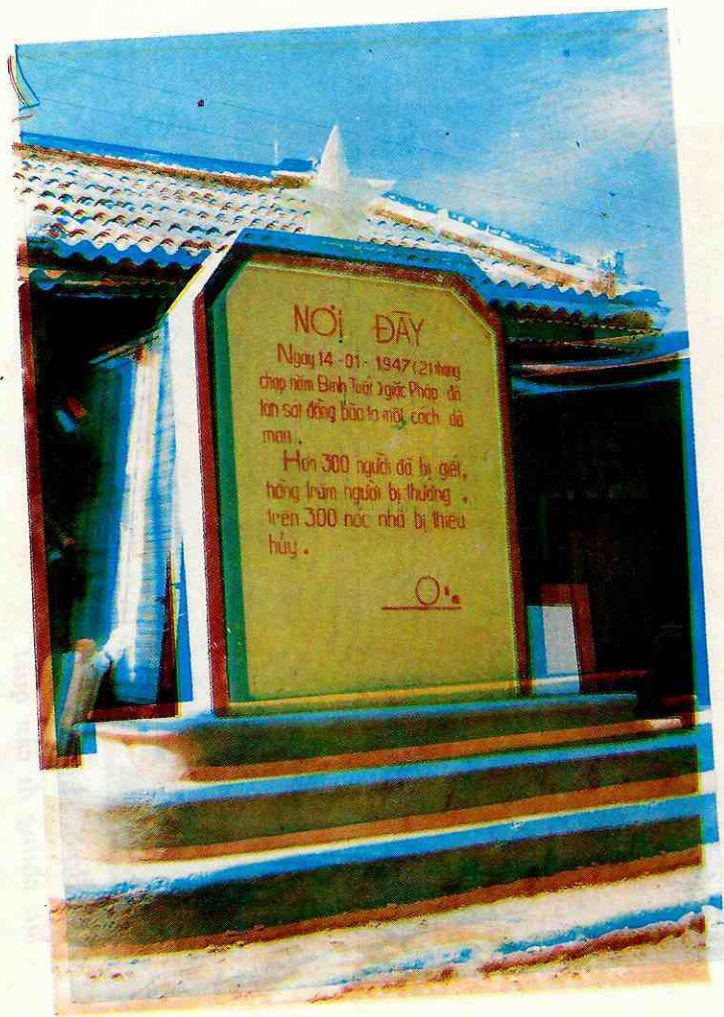 NƠI ĐÂY
Ngày 14-01-1947 (21 tháng
chạp năm Bính Tuất) giặc Pháp đã
tàn sát đồng bào ta một cách dã
man.
Hơn 300 người đã bị giết,
hàng trăm người bị thương.
trên 300 nóc nhà bị thiêu
hủy.